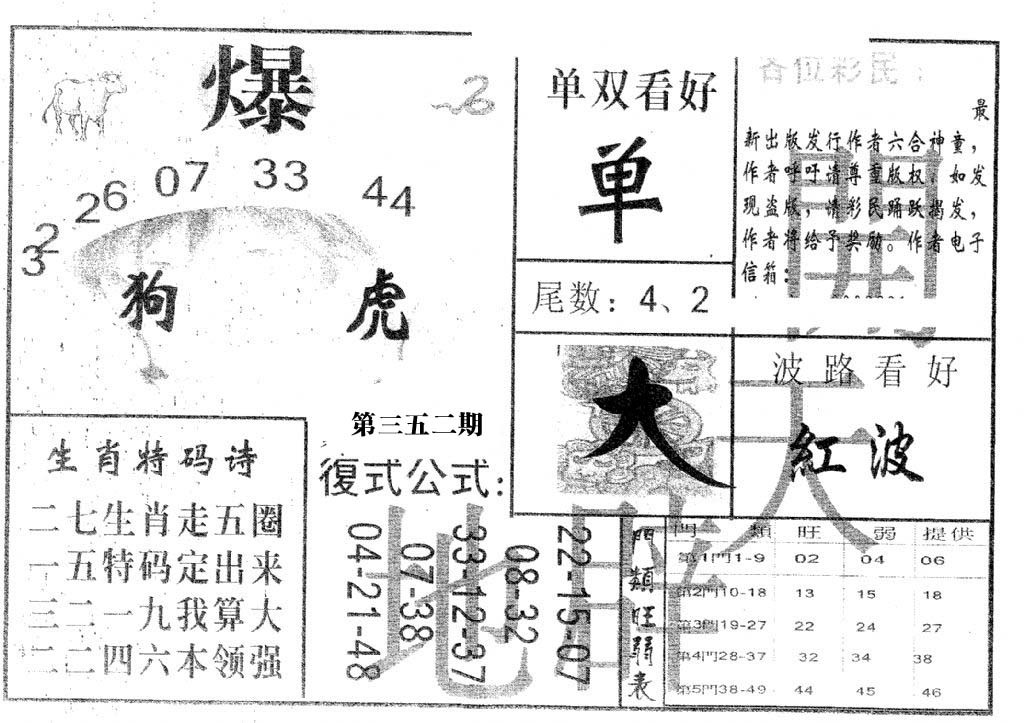 爆
32 26 07 33 44
狗 虎
单双看好
单
尾数：4、2
各位彩民：
最
新出版发行作者六合神童，
作者呼吁请尊重版权，如发
现盗版，请彩民踊跃揭发，
作者将给予奖励。作者电子
信箱：
大
波路看好
紅波
第三五二期
復式公式：
04-21-48
07-38
33-12-37
08-32
22-15-07
生肖特码诗
二七生肖走五圈
一五特码定出来
三二一九我算大
二二四六本领强
門類旺弱表
門 類 旺 弱 提供
第1門1-9 02 04 06
第2門10-18 13 15 18
第3門19-27 22 24 27
第4門28-37 32 34 38
第5門38-49 44 45 46
開
天
地